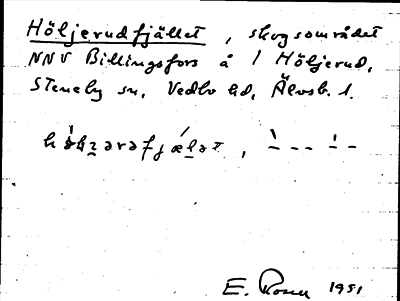 Höljerudfjället, skogsområdet
NNV Billingsfors å 1 Höljerud,
Steneby sn, Vedbo hd, Älvsb. l.
E. Rosen 1951